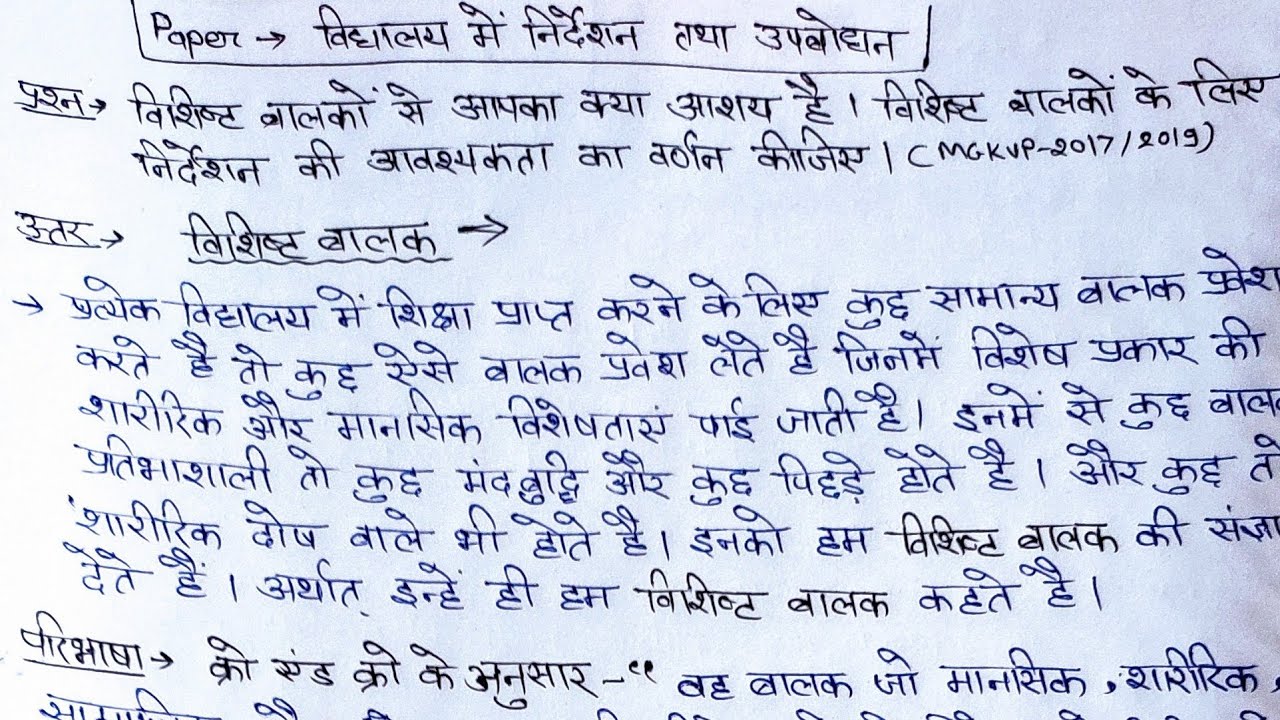 Paper → विद्यालय में निर्देशन तथा उपबोधन
प्रश्न → विशिष्ट बालकों से आपका क्या आशय है। विशिष्ट बालकों के लिए
निर्देशन की आवश्यकता का वर्णन कीजिए। (MGKVP-2017/2019)
उत्तर → विशिष्ट बालक →
→ प्रत्येक विद्यालय में शिक्षा प्राप्त करने के लिए कुछ सामान्य बालक प्रवेश
करते है तो कुछ ऐसे बालक प्रवेश लेते है जिनमें विशेष प्रकार की
शारीरिक और मानसिक विशेषताएं पाई जाती है। इनमें से कुछ बालक
प्रतिभाशाली तो कुछ मंदबुद्धि और कुछ पिछड़े होते है। और कुछ तो
शारीरिक दोष वाले भी होते है। इनको हम विशिष्ट बालक की संज्ञा
देते हैं। अर्थात् इन्हें ही हम विशिष्ट बालक कहते है।
परिभाषा → क्रो एंड क्रो के अनुसार -“ वह बालक जो मानसिक, शारीरिक,